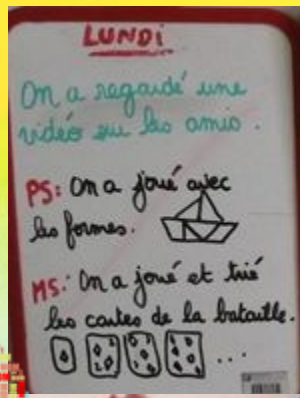 LUNDI
On a regardé une
vidéo sur les amis.
PS: On a joué avec
les formes.
MS: On a joué et trié
les cartes de la bataille.
...